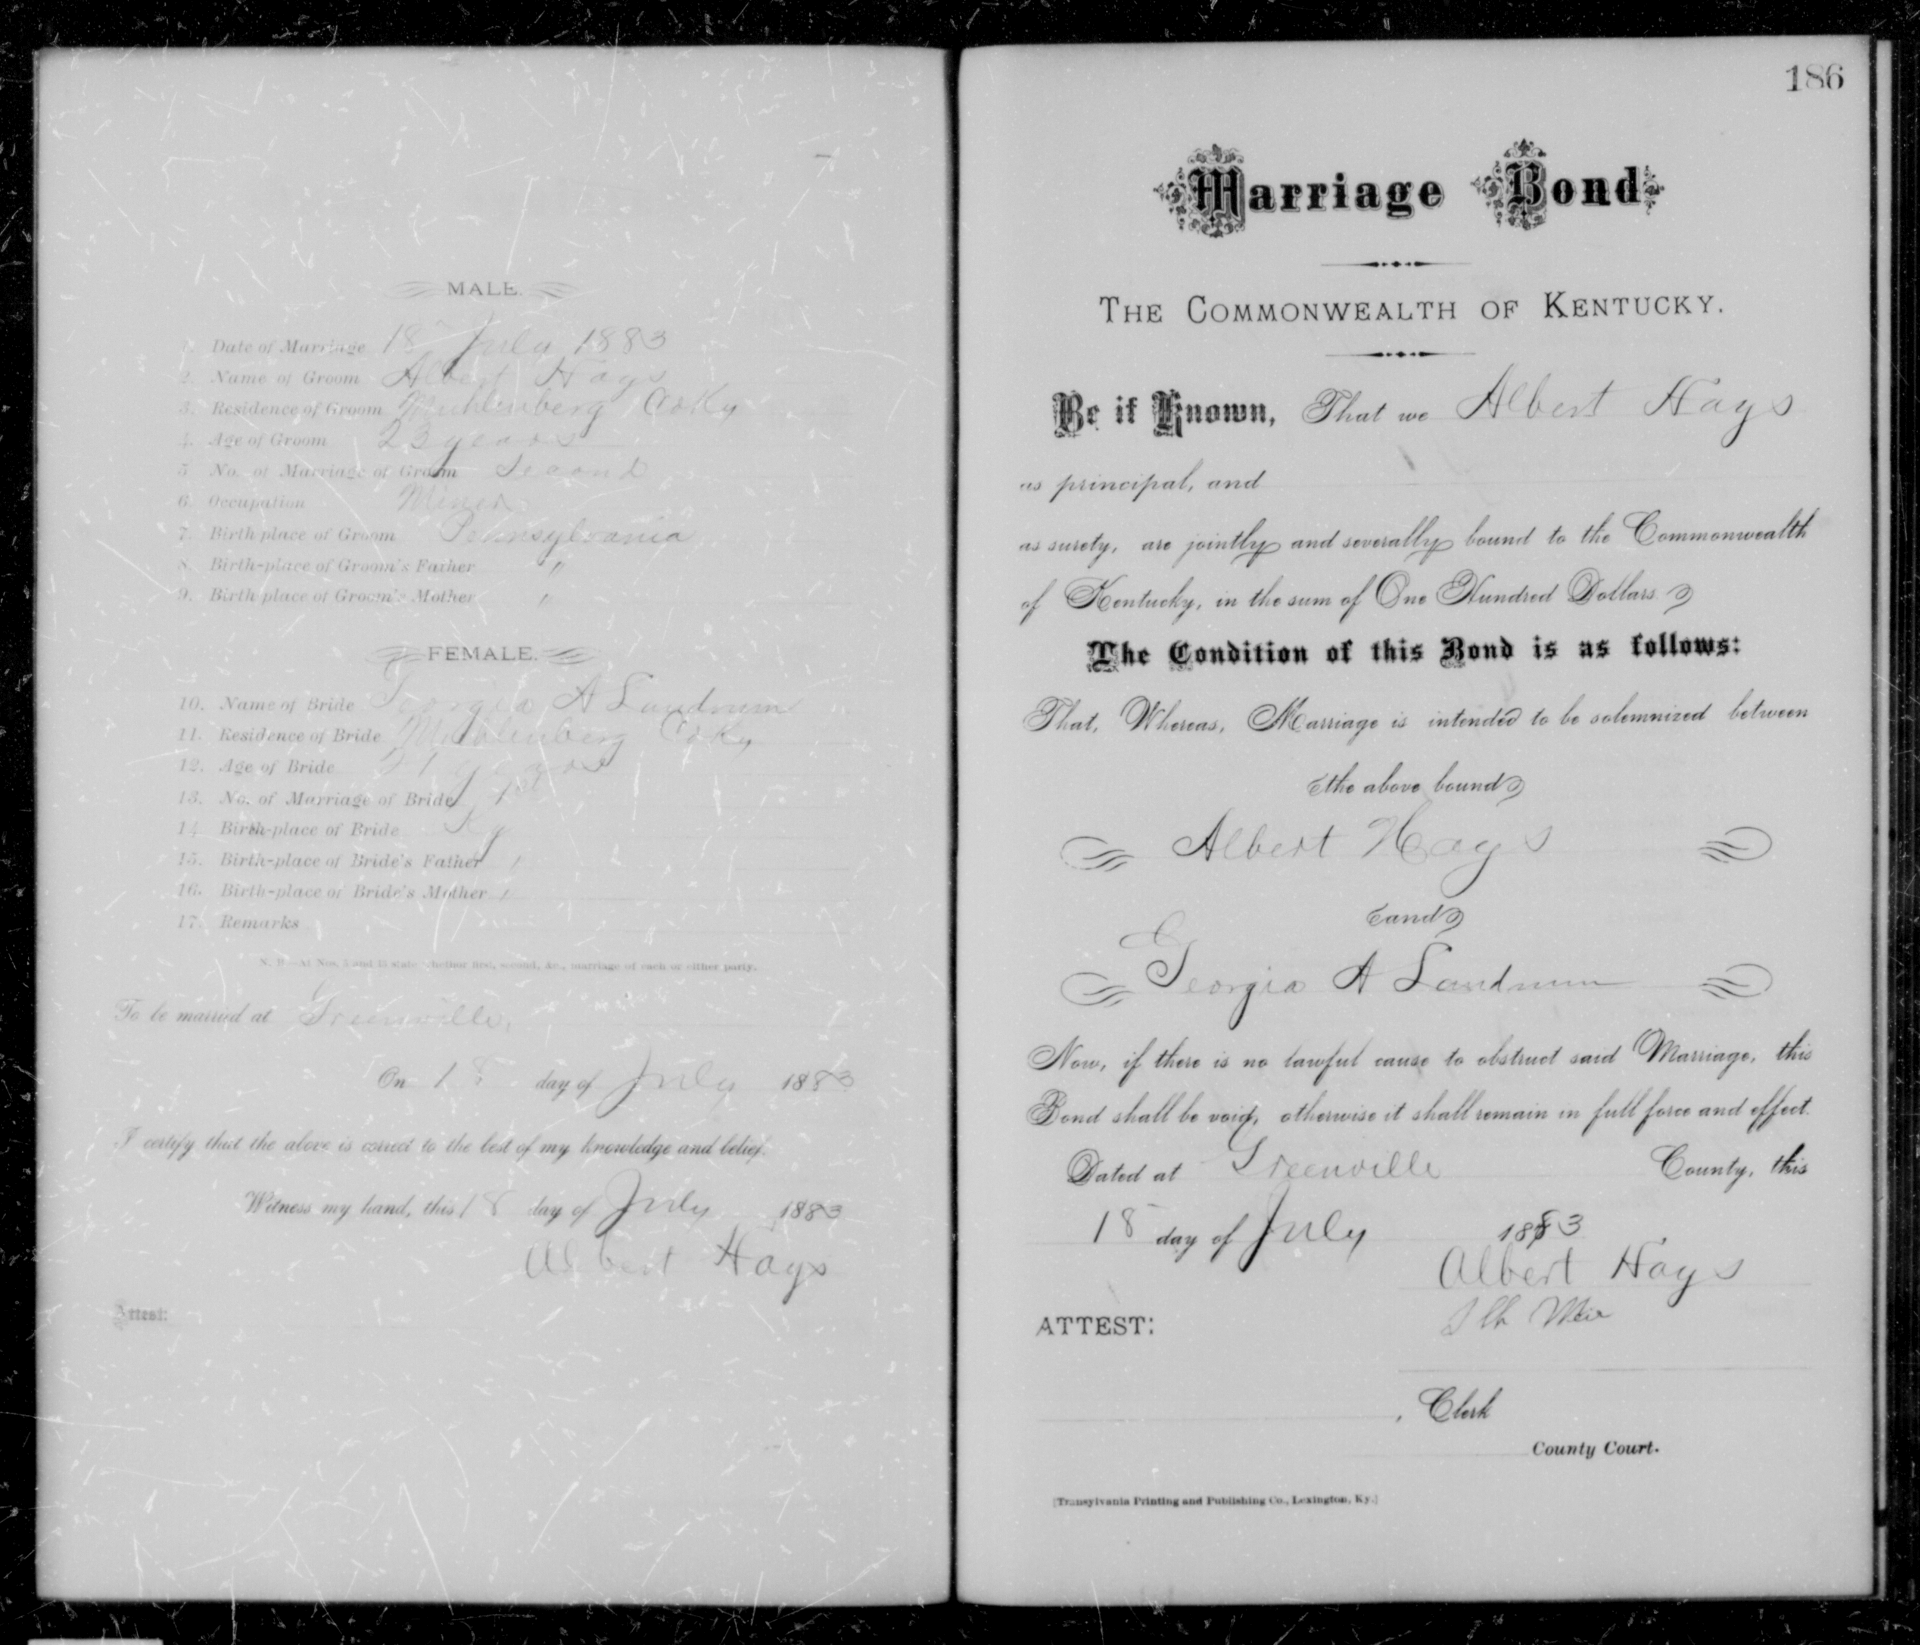 MALE.
1. Date of Marriage 18 July 1883
2. Name of Groom Albert Hays
3. Residence of Groom Muhlenberg Co Ky
4. Age of Groom 23 years
5 No. of Marriage of Groom Second
6. Occupation Miner
7. Birth place of Groom Pennsylvania
8. Birth-place of Groom's Father "
9. Birth place of Groom's Mother "
FEMALE.
10. Name of Bride Georgia A Landrum
11. Residence of Bride Muhlenberg Co Ky
12. Age of Bride 21 years
13. No. of Marriage of Bride 1st
14 Birth-place of Bride Ky
15. Birth-place of Bride's Father "
16. Birth-place of Bride's Mother "
17. Remarks
N. B—At Nos. 5 and 13 state whether first, second, &c., marriage of each or either party.
To be married at Greenville,
On 18 day of July 1883
I certify that the above is correct to the best of my knowledge and belief.
Witness my hand, this 18 day of July 1883
Albert Hays
Attest:
186
Marriage Bond
THE COMMONWEALTH OF KENTUCKY.
Be it Known, That we Albert Hays
as principal, and
as surety, are jointly and severally bound to the Commonwealth
of Kentucky, in the sum of One Hundred Dollars
The Condition of this Bond is as follows:
That, Whereas, Marriage is intended to be solemnized between
the above bound
Albert Hays
and
Georgia A Landrum
Now, if there is no lawful cause to obstruct said Marriage, this
Bond shall be void, otherwise it shall remain in full force and effect.
Dated at Greenville County, this
18 day of July 1883
Albert Hays
ATTEST:
, Clerk
County Court.
[Transylvania Printing and Publishing Co., Lexington, Ky.]